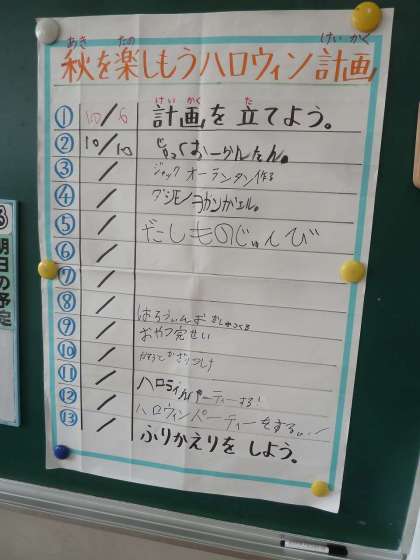 秋を楽しもうハロウィン計画
あき たの けいかく
① 10/6 計画を立てよう。
けいかく た
② 10/10 じゃっくおーらんたん。
③ / ジャックオーランタン作る
④ / ダシモノヨカンガエル。
⑤ / だしものじゅんび
⑥ /
⑦ /
⑧ / はろうぃん
⑨ / おやつ完せい
⑩ / かざりつけ
⑪ / ハロウィンパーティーする!
⑫ / ハロウィンパーティーをする。!
⑬ / ふりかえりをしよう。
明日の予定